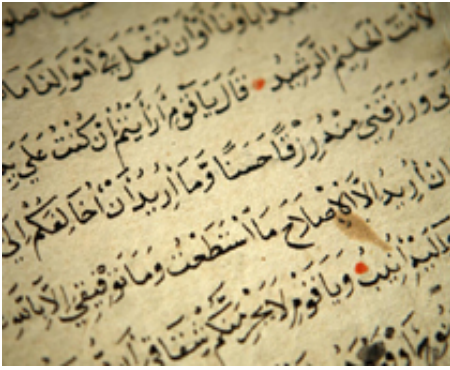 اٰبَاؤُنَا اَوْ اَنْ نَفْعَلَ فِي اَمْوَالِنَا مَا
لَاَنْتَ الْحَلِيمُ الرَّشِيدُ قَالَ يَا قَوْمِ اَرَاَيْتُمْ اِنْ كُنْتُ عَلٰى
وَرَزَقَنِي مِنْهُ رِزْقًا حَسَنًا وَمَا اُرِيدُ اَنْ اُخَالِفَكُمْ اِلٰى
اِنْ اُرِيدُ اِلَّا الْاِصْلَاحَ مَا اسْتَطَعْتُ وَمَا تَوْفِيقِي اِلَّا بِاللّٰهِ
وَاِلَيْهِ اُنِيبُ وَيَا قَوْمِ لَا يَجْرِمَنَّكُمْ شِقَاقِي اَنْ
نُوحٍ اَوْ